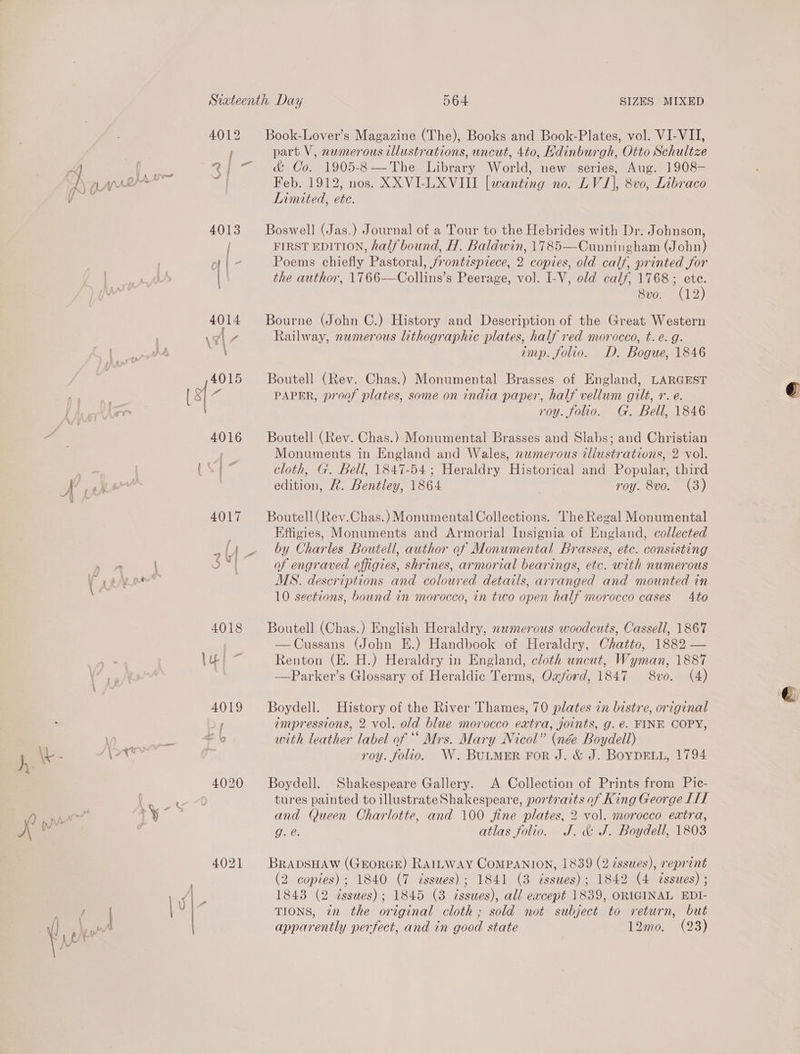 Sixteenth Day 564 SIZES MIXED
4012 Book-Lover's Magazine (The), Books and Book-Plates, vol. VI-VII,
part V, numerous illustrations, uncut, 4to, Edinburgh, Otto Schultze
& Co. 1905-8—The Library World, new series, Aug. 1908-
Feb. 1912, nos. XXVI-LXVIII [wanting no. LVI], 8vo, Libraco
Limited, etc.
4013 Boswell (Jas.) Journal of a Tour to the Hebrides with Dr. Johnson,
FIRST EDITION, half bound, H. Baldwin, 1785—Cunningham (John)
Poems chiefly Pastoral, frontispiece, 2 copies, old calf, printed for
the author, 1766—Collins's Peerage, vol. I-V, old calf, 1768; etc.
8vo. (12)
4014 Bourne (John C.) History and Description of the Great Western
Railway, numerous lithographic plates, half red morocco, t. e. g.
imp. folio. D. Bogue, 1846
4015 Boutell (Rev. Chas.) Monumental Brasses of England, LARGEST
PAPER, proof plates, some on india paper, half vellum gilt, r. e.
roy. folio. G. Bell, 1846
4016 Boutell (Rev. Chas.) Monumental Brasses and Slabs; and Christian
Monuments in England and Wales, numerous illustrations, 2 vol.
cloth, G. Bell, 1847-54; Heraldry Historical and Popular, third
edition, R. Bentley, 1864 roy. 8vo. (3)
4017 Boutell (Rev. Chas.) Monumental Collections. The Regal Monumental
Effigies, Monuments and Armorial Insignia of England, collected
by Charles Boutell, author of Monumental Brasses, etc. consisting
of engraved effigies, shrines, armorial bearings, etc. with numerous
MS. descriptions and coloured details, arranged and mounted in
10 sections, bound in morocco, in two open half morocco cases 4to
4018 Boutell (Chas.) English Heraldry, numerous woodcuts, Cassell, 1867
—Cussans (John E.) Handbook of Heraldry, Chatto, 1882—
Renton (E. H.) Heraldry in England, cloth uncut, Wyman, 1887
—Parker's Glossary of Heraldic Terms, Oxford, 1847 8vo. (4)
4019 Boydell. History of the River Thames, 70 plates in bistre, original
impressions, 2 vol. old blue morocco extra, joints, g. e. FINE COPY,
with leather label of "Mrs. Mary Nicol" (née Boydell)
roy. folio. W. BULMER FOR J. & J. BOYDELL, 1794
4020 Boydell. Shakespeare Gallery. A Collection of Prints from Pic-
tures painted to illustrate Shakespeare, portraits of King George III
and Queen Charlotte, and 100 fine plates, 2 vol. morocco extra,
g. e. atlas folio. J. & J. Boydell, 1803
4021 BRADSHAW (GEORGE) RAILWAY COMPANION, 1839 (2 issues), reprint
(2 copies); 1840 (7 issues); 1841 (3 issues); 1842 (4 issues);
1843 (2 issues); 1845 (3 issues), all except 1839, ORIGINAL EDI-
TIONS, in the original cloth; sold not subject to return, but
apparently perfect, and in good state 12mo. (23)